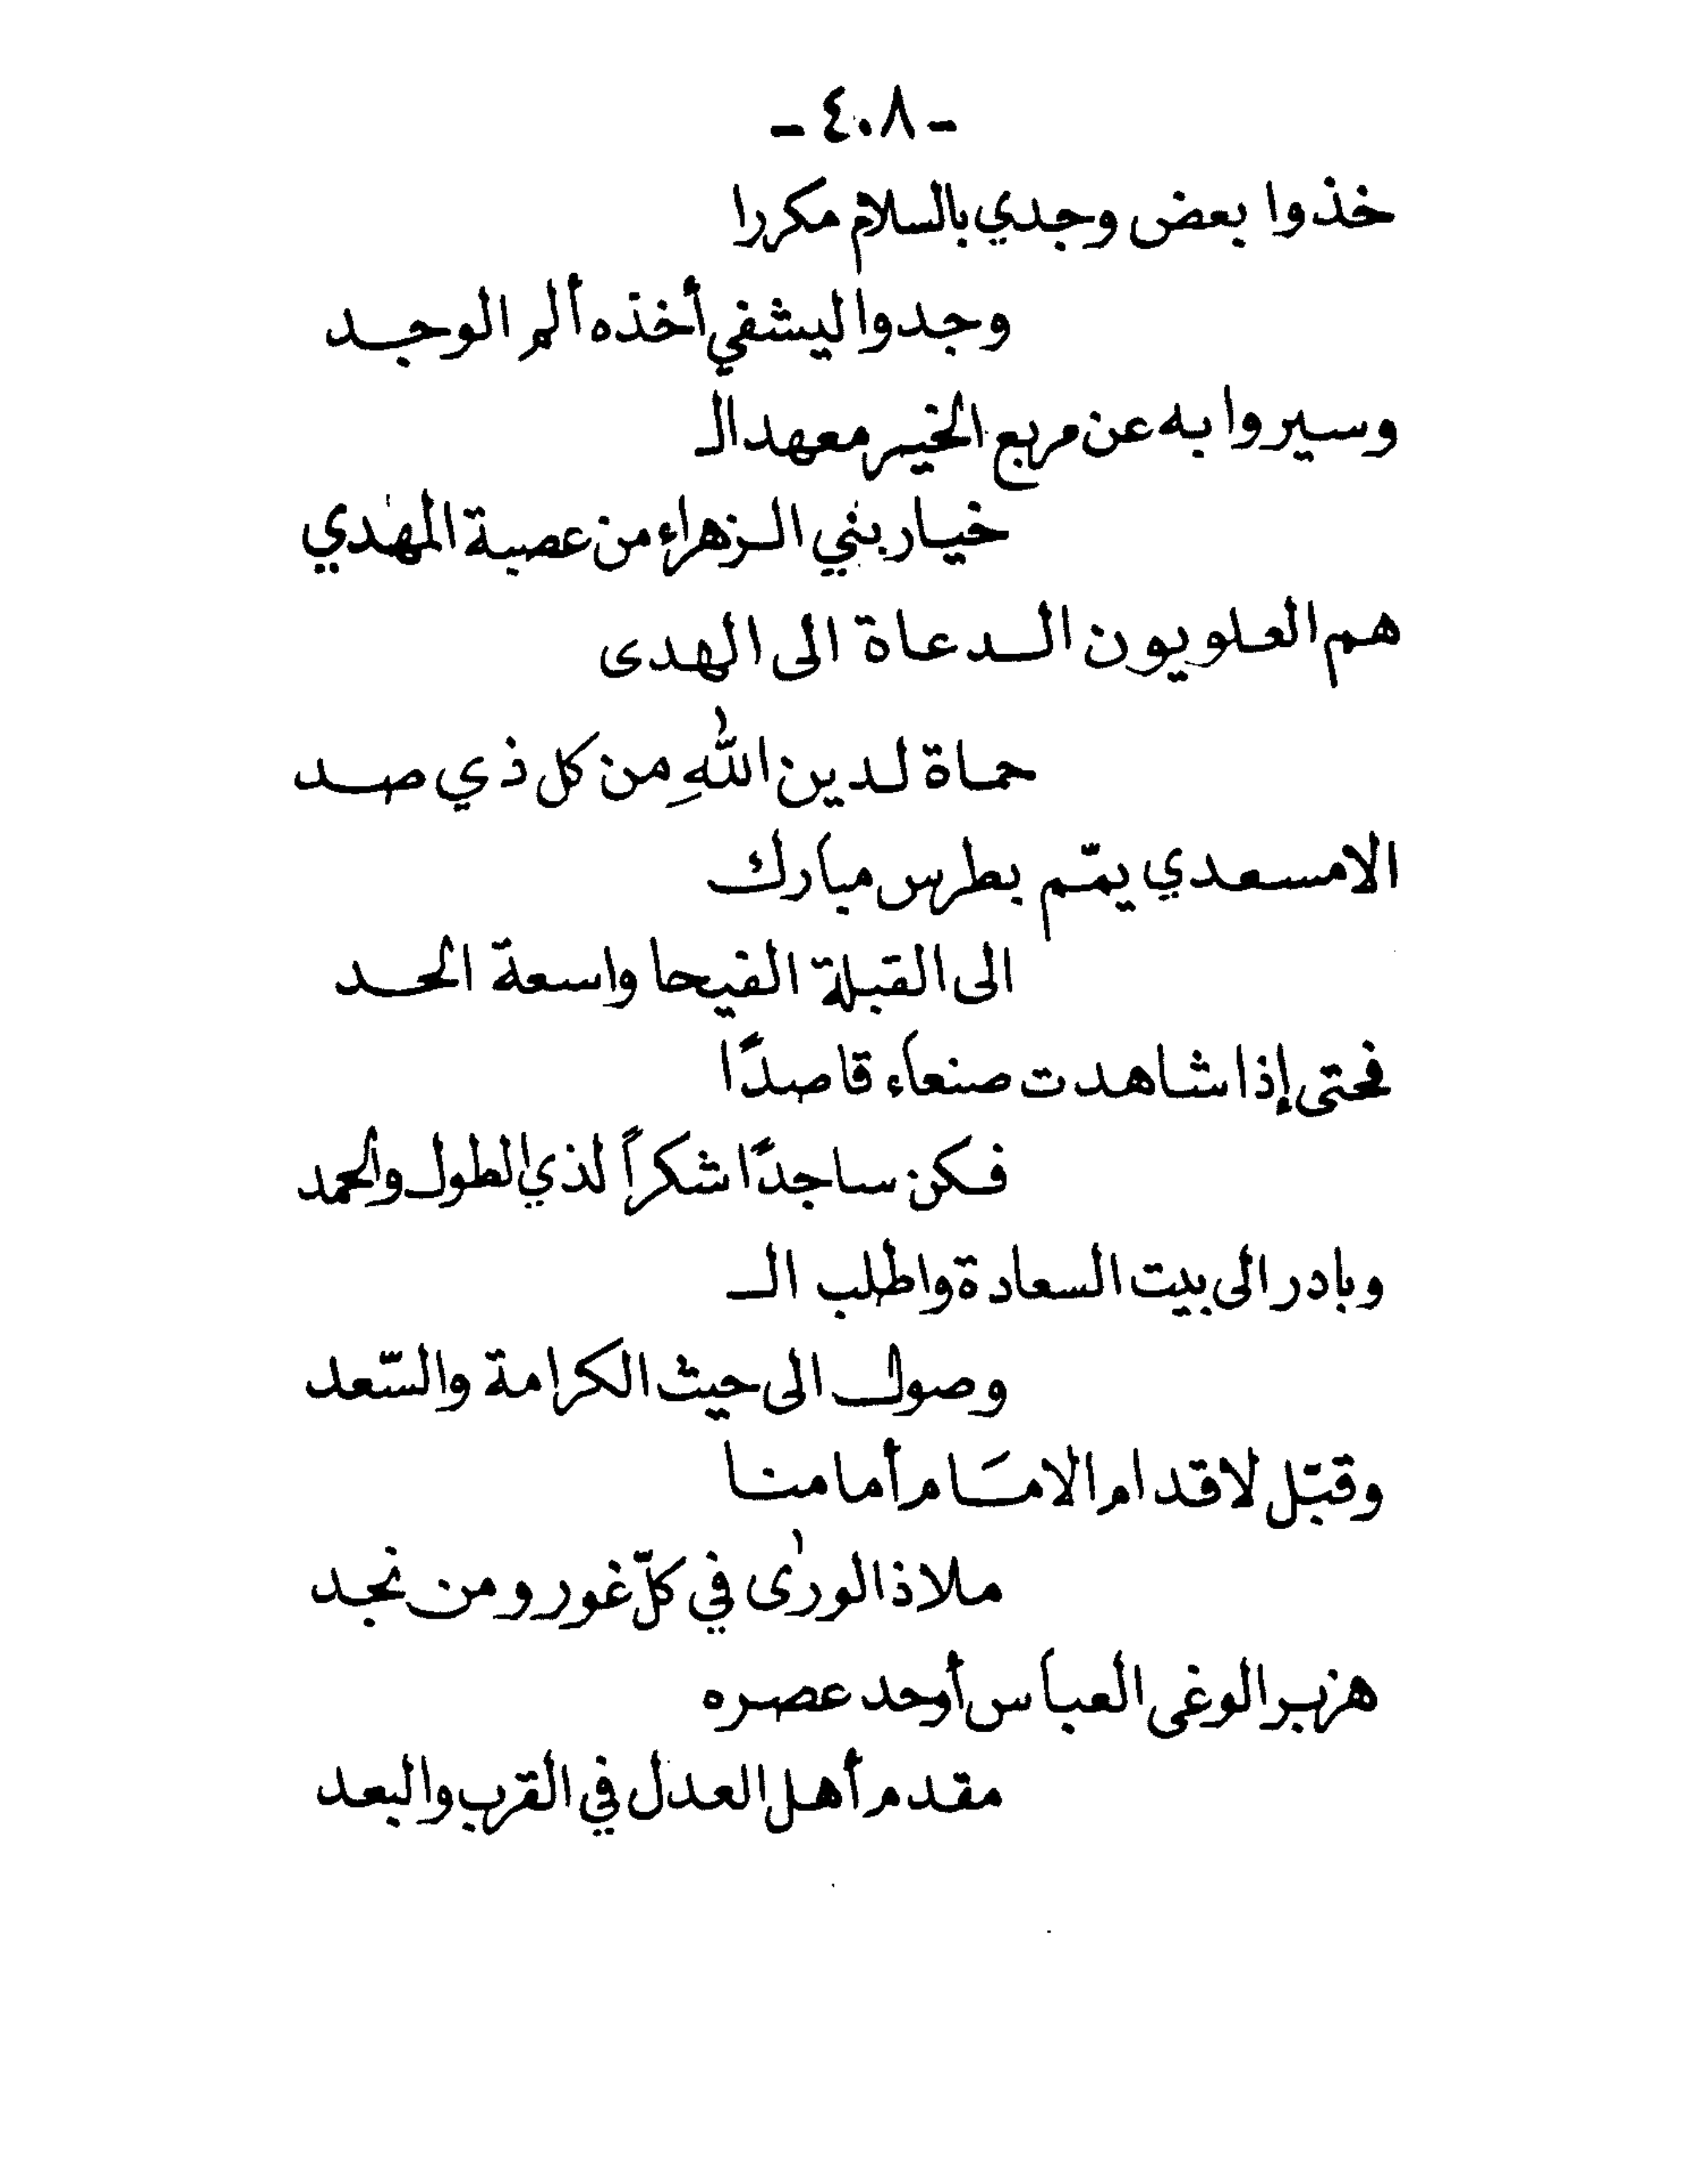 - ٤٠٨ -
خذوا بعض وجدي بالسلام مكررا
وجدوا ليشفي أخذه ألم الوجد
وسيروا به عن مربع الخير معهد الـ
خيار بني الزهراء من عصبة المهدي
هم العلويون الدعاة الى الهدى
حماة لدين اللهِ من كل ذي صد
الا مسعدي يمّم بطرس مبارك
الى القبلة الفيحا واسعة الحد
فحتى إذا شاهدت صنعاء قاصدًا
فكن ساجدًا شكراً لذي الطول والحمد
وبادر الى بيت السعادة واطلب الـ
وصول الى حيث الكرامة والسّعد
وقبّل لاقدام الامَام أمامنا
ملاذ الورى في كلّ غور ومن نجد
هزبر الوغى العباس أوحد عصره
مقدم أهل العدل في القرب والبعد